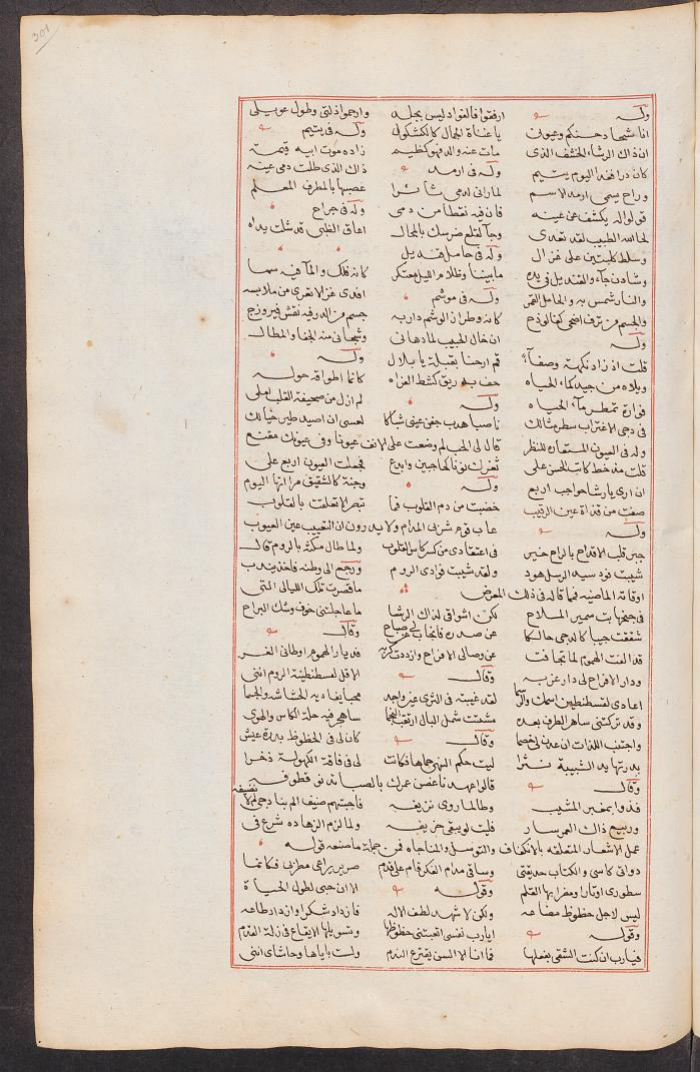 301
وله ارفقوا فالفواد ليس بجلد وارحموا ذلتي وطول عويلي
انا شحاد حسنكم وعيوني يا غناة الجمال كالكشكول وله في يتيم
ان ذاك الرشا الخشف الذي مات عنه والد فهو كظيم زاده موت ابيه قيمة
كان درا فغدا اليوم يتيم وله في ارمد ذاك الذي طلت دمي عينه
وراح يسمى ارمد الاسم لما رانى لدمي ثائرا عصبها بالمطرف المعلم
قولوا له يكشف عن عينه فان فيه نقطا من دمى وله في جراح
لحا الله الطبيب لقد تعدى وجا لقلع ضرسك بالمحال اعاق الظبي قد شلت يداه
وسلط كلبتين على غزال وله في حامل قنديل
وشادن جاء والقنديل في يده ما بيننا وظلام الليل معتكر كانه فلك والماء فيه سما
والنار شمس به والحامل القمر وله في موشم افدى غزالا تعرى من ملابسه
والجسم من ترف اضحى كفالوذج كانه وطراز الوشم دار به جسم من الدر فيه نقش فيروزج
وله ان خال الحبيب لما دهاني وشجاني منه الجفا والمطال
قلت اذ زاد نكهة وصفاء قم ارحنا بقبلة يا بلال وله
ويلاه من جيد كماء الحياه حف به ريق كشط الفراه كانما اطواقه حوله
فوارة تمطر ماء الحياه وله لم ازل من صحيفة القلب املي
في دجى الاغتراب سطر مثالك ناصبا هدب جفن عيني شباكا لعسى ان اصيد طير خيالك
وله في العيون المستعاره للنظر قال لي الحب لم وضعت على الانف عيونا وفي عيونك مقنع
قلت مذ خط كاتب الحسن على ثغرك نونا كالحاجبين وابدع فجعلت العيون اربع على
ان ارى يا رشا حواجب اربع وله وجنة كالشقيق مراتها اليوم
صفت من قذاة عين الرقيب خضبت من دم القلوب فما تبصر الا تعلقت بالقلوب
وله عاب قوم شرب المدام ولا يدرون ان التغييب عين العيوب
جبر قلب الاقداح بالراح خير في اعتقادى من كسر كاس القلوب ولما طال مكثه بالروم قال
شيبت فود سيد الرسل هود ولقد شيبت فوادى الروم ورجع الى وطنه فاخذ يندب
اوقاته الماضيه فما قاله في ذلك المعرض ما قصرت تلك الليالى التى
في جنحها بت سمير الملاح لكن اشواقى لذاك الرشا ما عاجلتنى خوف وشك البراح
شققت جيبا كالدجى حالكا عن صدره فانجاب لي عن صباح وقال
قد الفت الهموم لما تجافت عن وصالى الافراح وازددت كربه فديار الهموم اوطانى الغر
ودار الافراح لى دار غربه وقال الا قل لقسطنطينة الروم اننى
اعادى لقسطنطين اسمك والرسما لقد غيبته في الثرى غير واحد محيا يفاديه الحشاشة والجسما
وقد تركتنى ساهر الطرف بعده مشتت شمل البال ارتقب النجما ساهجر فيه حلة الكاس والهوى
واجتنب اللذات ان عدن لى خصما وقال كان لى في الحظوظ بدرة عيش
بدرتها يد الشبيبة نثرا ليت حكم النهى حماها فكانت لى في فاقة الكهولة ذخرا
وقال قالوا عهدناغصن عمرك بالصبا تدنو قطوفه
فذوا بمغبر المشيب وطالما روى نزيفه فاجبتهم ضيف الم بنا دجى الا نضيفه
وربيع ذاك العمر سار فليت لو يبقى خريفه ولما لزم الزهاده شرع في
عمل الاشعار المتعلقه بالانكفاف والتوسل والمناجاه فمن جملة ما صنعه قوله
دواتى كاسى والكتاب حديقتى وساقى مدام الفكر قام على قدم صرير يراعى مطربى فكانما
سطورى اوتار ومضرابها القلم وقوله الا ان حبى لطول الحياة
ليس لاجل حظوظ مضاعه ولكن لاشهد لطف الاله فازداد شكرا وازداد طاعه
وقوله ايا رب نفسى اتعبتنى حظوظها وتسويلها الايقاع في زلة القدم
فيا رب ان كنت الشقى بفعلها فما انا الا السن يقترع الندم ولست باباها وحاشاى اننى